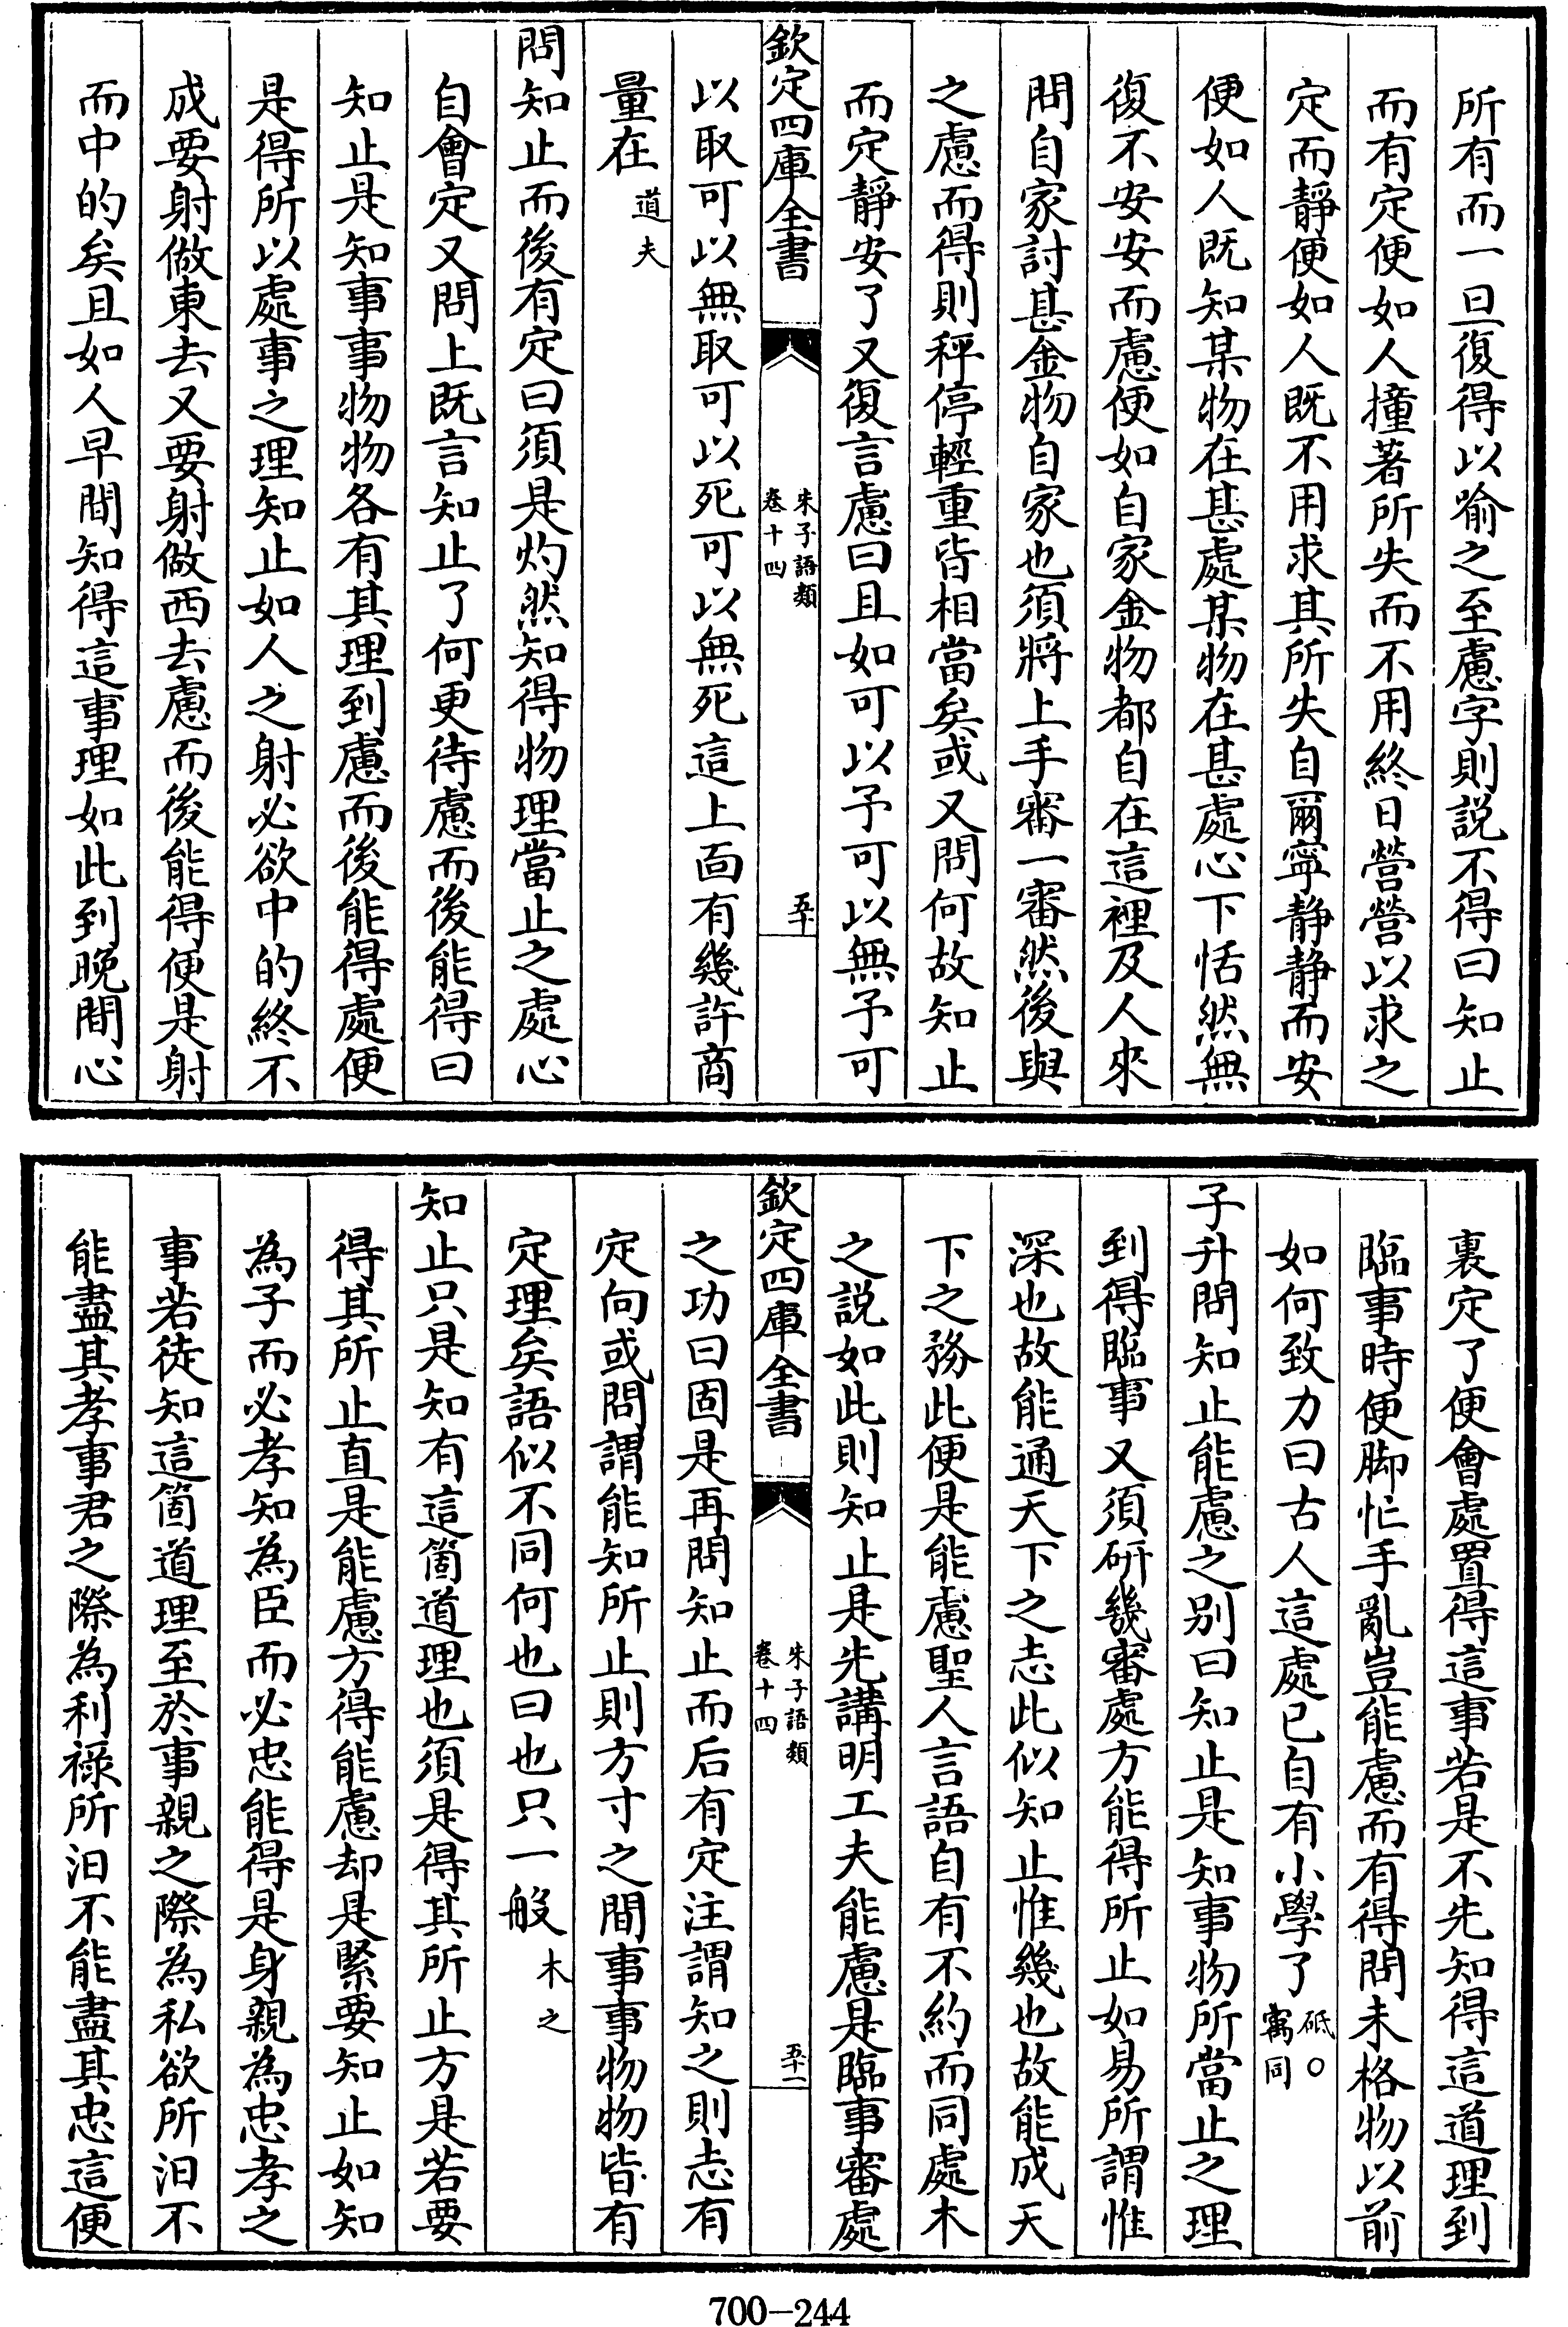 所有而一旦復得以喻之至慮字則説不得曰知止
而有定便如人撞著所失而不用終日營營以求之
定而靜便如人既不用求其所失自爾寧静静而安
便如人既知某物在甚處某物在甚處心下恬然無
復不安安而慮便如自家金物都自在這裡及人來
問自家討甚金物自家也須將上手審一審然後與
之慮而得則秤停輕重皆相當矣或又問何故知止
而定靜安了又復言慮曰且如可以予可以無予可
欽定四庫全書
朱子語類
卷十四
五十
以取可以無取可以死可以無死這上面有幾許商
量在道夫
問知止而後有定曰須是灼然知得物理當止之處心
自會定又問上既言知止了何更待慮而後能得曰
知止是知事事物物各有其理到慮而後能得處便
是得所以處事之理知止如人之射必欲中的終不
成要射做東去又要射做西去慮而後能得便是射
而中的矣且如人早間知得這事理如此到晚間心
裏定了便會處置得這事若是不先知得這道理到
臨事時便脚忙手亂豈能慮而有得問未格物以前
如何致力曰古人這處已自有小學了砥○寓同
子升問知止能慮之别曰知止是知事物所當止之理
到得臨事又須研幾審處方能得所止如易所謂惟
深也故能通天下之志此似知止惟幾也故能成天
下之務此便是能慮聖人言語自有不約而同處木
之説如此則知止是先講明工夫能慮是臨事審處
欽定四庫全書
朱子語類
卷十四
五十一
之功曰固是再問知止而后有定注謂知之則志有
定向或問謂能知所止則方寸之間事事物物皆有
定理矣語似不同何也曰也只一般木之
知止只是知有這箇道理也須是得其所止方是若要
得其所止直是能慮方得能慮却是緊要知止如知
為子而必孝知為臣而必忠能得是身親為忠孝之
事若徒知這箇道理至於事親之際為私欲所汩不
能盡其孝事君之際為利禄所汩不能盡其忠這便
700-244